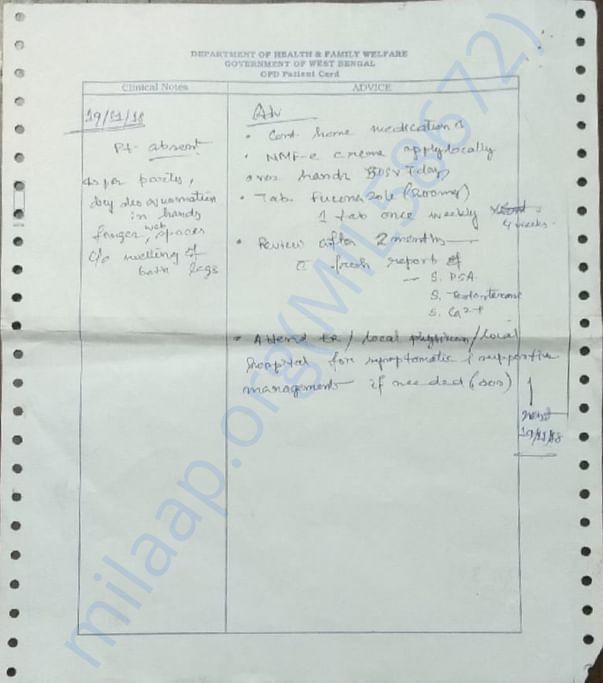 DEPARTMENT OF HEALTH & FAMILY WELFARE
GOVERNMENT OF WEST BENGAL
OPD Patient Card
Clinical Notes
ADVICE
19/11/18
Pt- absent
As per party,
dry desquamation
in hands
finger web spaces
c/o swelling of
both legs
Adv
• Cont. home medications
• NMF-e creme apply locally
over hands
• Tab.
1 tab once weekly
4 weeks
• Review after 2 months
c fresh report of
— S. PSA
S. Testosterone
S. Ca2+
• Attend / local physician / local
hospital for symptomatic & supportive
management if needed (sos)
19/11/18
milaap.org(MIL58672)